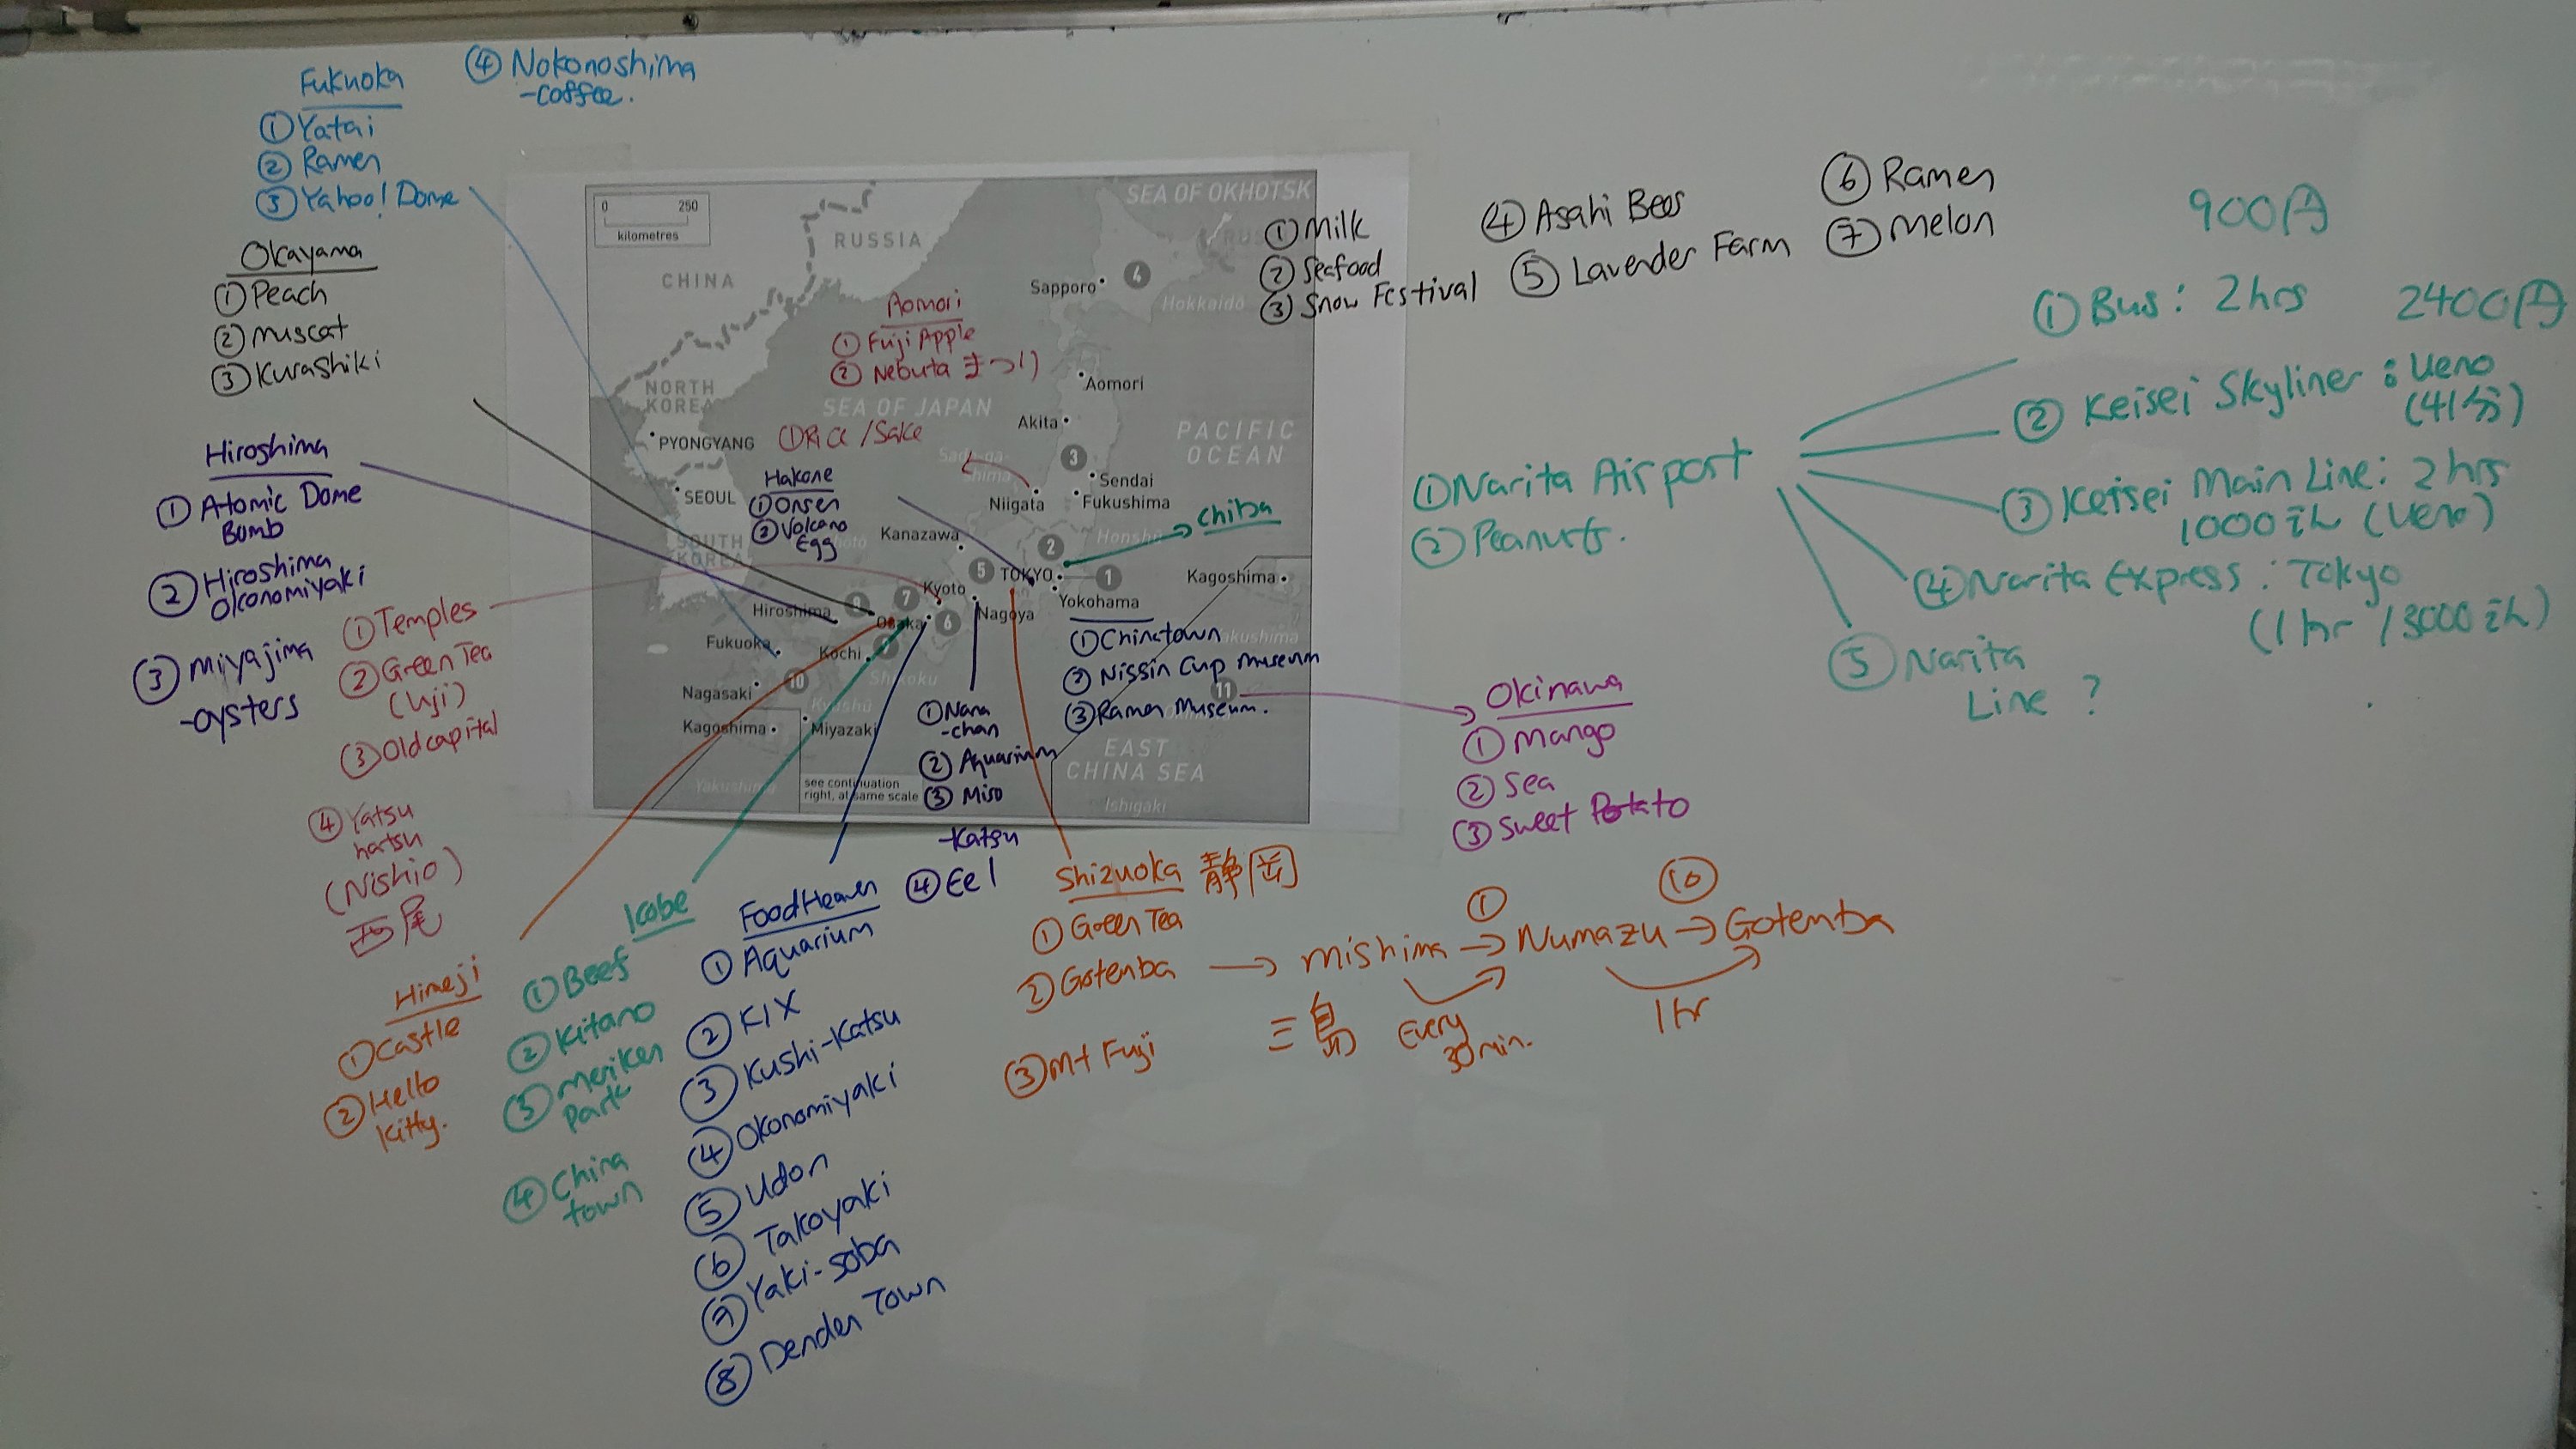 Fukuoka
① Yatai
② Ramen
③ Yahoo! Dome
④ Nokonoshima
-coffee.
Okayama
① Peach
② Muscat
③ Kurashiki
Hiroshima
① Atomic Dome
Bomb
② Hiroshima
Okonomiyaki
③ Miyajima
-oysters
① Temples
② Green Tea
(Uji)
③ Old capital
④ Yatsu
hatsu
(Nishio)
西尾
Himeji
① Castle
② Hello
Kitty.
Kobe
① Beef
② Kitano
③ Meriken
Park
④ China
town
Food Heaven
① Aquarium
② KIX
③ Kushi-Katsu
④ Okonomiyaki
⑤ Udon
⑥ Takoyaki
⑦ Yaki-soba
⑧ Denden Town
0 250
kilometres
RUSSIA
CHINA
NORTH
KOREA
PYONGYANG
SEOUL
SOUTH
KOREA
SEA OF JAPAN
SEA OF OKHOTSK
Sapporo
4
Hokkaido
Aomori
① Fuji Apple
② Nebuta まつり
Aomori
Akita
PACIFIC
OCEAN
① Rice / Sake
3
Sendai
Niigata
Fukushima
Hakone
① Onsen
② Volcano
Egg
Kanazawa
Honshu
2
Chiba
5
TOKYO
1
Kagoshima
Kyoto
Yokohama
7
Nagoya
Hiroshima
8
Osaka
6
Fukuoka
Kochi
9
Shikoku
10
Nagasaki
Kyushu
Kagoshima
Miyazaki
Yakushima
see continuation
right, at same scale
① Chinatown
② Nissin Cup Museum
③ Ramen Museum.
11
EAST
CHINA SEA
Ishigaki
① Nana
-chan
② Aquarium
③ Miso
-Katsu
④ Eel
① Milk
② Seafood
③ Snow Festival
④ Asahi Beer
⑤ Lavender Farm
⑥ Ramen
⑦ Melon
① Narita Airport
② Peanuts.
900円
① Bus: 2 hrs 2400円
② Keisei Skyliner: Ueno
(41分)
③ Keisei Main Line: 2 hrs
1000えん (Ueno)
④ Narita Express: Tokyo
(1 hr / 3000えん)
⑤ Narita
Line ?
Okinawa
① Mango
② Sea
③ Sweet Potato
Shizuoka 静岡
① Green Tea
② Gotenba → Mishima → Numazu → Gotenba
①
⑩
三島
Every
30 min.
1 hr
③ Mt Fuji